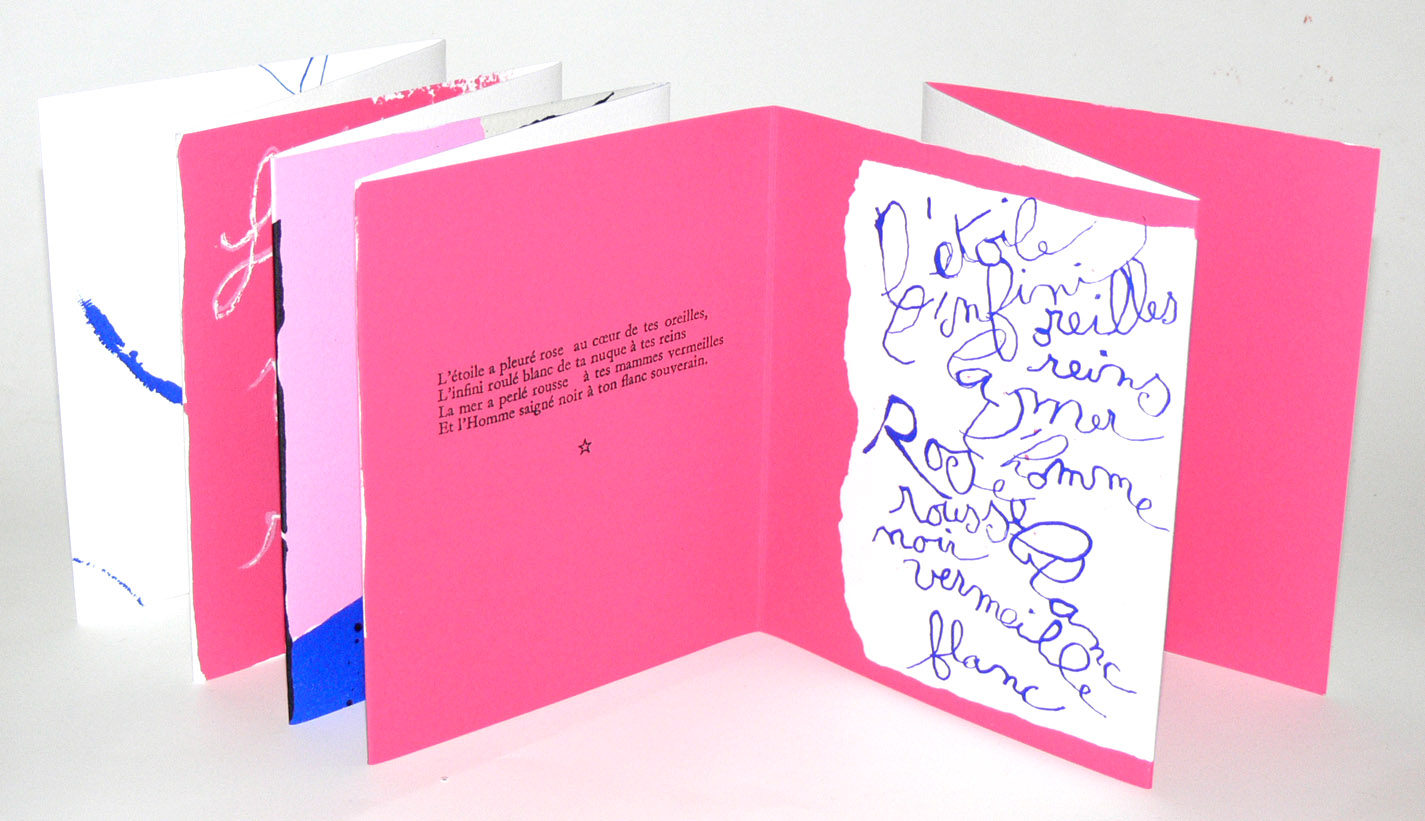 L'étoile a pleuré rose au cœur de tes oreilles,
L'infini roulé blanc de ta nuque à tes reins
La mer a perlé rousse à tes mammes vermeilles
Et l'Homme saigné noir à ton flanc souverain.
l'étoile
l'infini
oreilles
reins
la mer
Rose
l'homme
rousse
Blanc
noir
vermeille
flanc